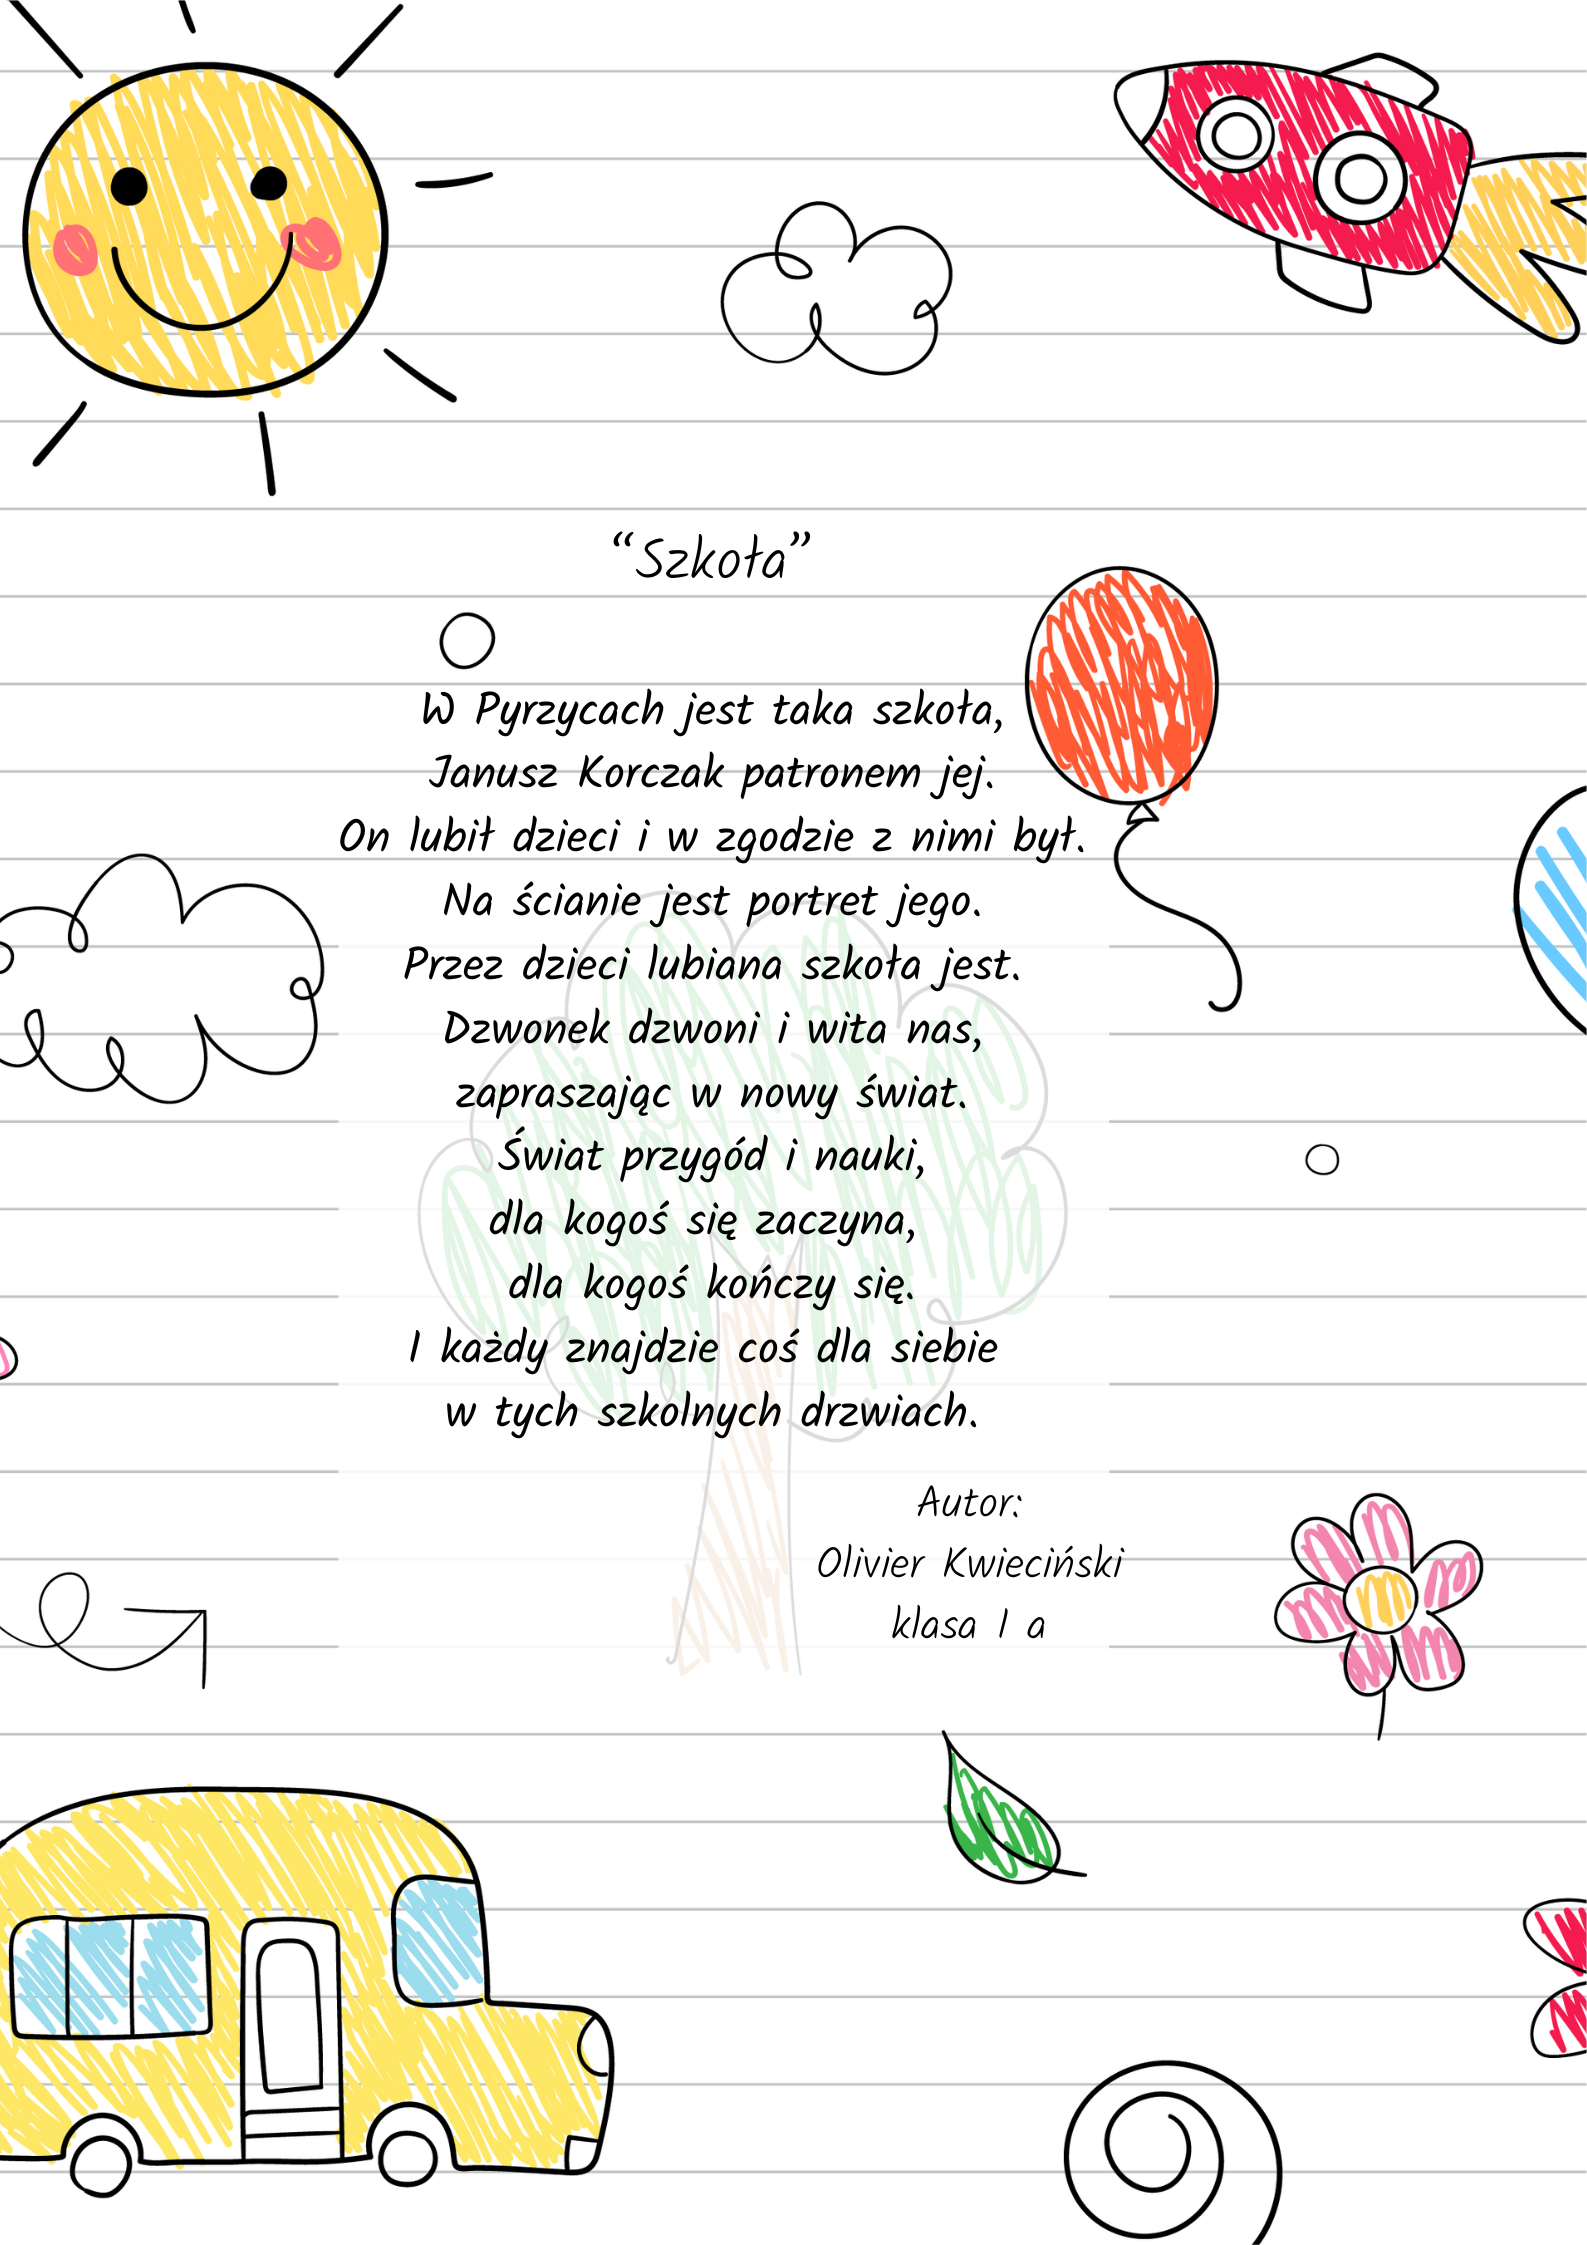 “Szkoła”
W Pyrzycach jest taka szkoła,
Janusz Korczak patronem jej.
On lubił dzieci i w zgodzie z nimi był.
Na ścianie jest portret jego.
Przez dzieci lubiana szkoła jest.
Dzwonek dzwoni i wita nas,
zapraszając w nowy świat.
Świat przygód i nauki,
dla kogoś się zaczyna,
dla kogoś kończy się.
I każdy znajdzie coś dla siebie
w tych szkolnych drzwiach.
Autor:
Olivier Kwieciński
klasa 1 a